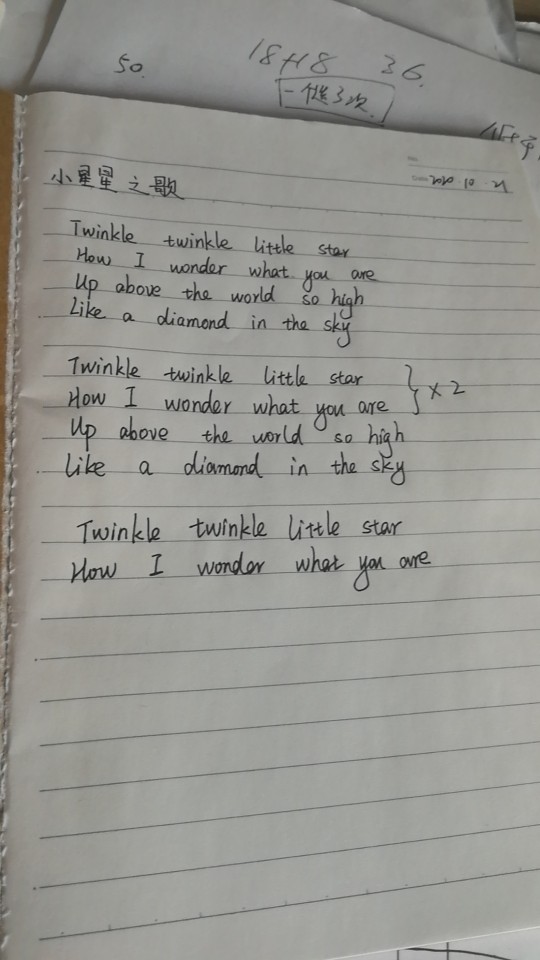 50.
18+18 36.
一作3次
小星星之歌
2020.10.21
Twinkle twinkle little star
How I wonder what you are
Up above the world so high
Like a diamond in the sky
Twinkle twinkle little star
How I wonder what you are
} ×2
Up above the world so high
Like a diamond in the sky
Twinkle twinkle little star
How I wonder what you are